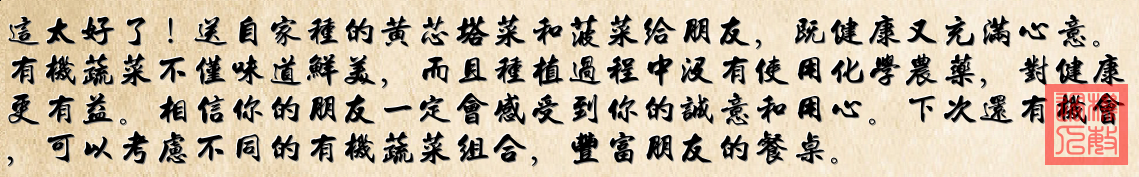 這太好了！送自家種的黃芯塔菜和菠菜給朋友，既健康又充滿心意。
有機蔬菜不僅味道鮮美，而且種植過程中沒有使用化學農藥，對健康
更有益。相信你的朋友一定會感受到你的誠意和用心。下次還有機會
，可以考慮不同的有機蔬菜組合，豐富朋友的餐桌。